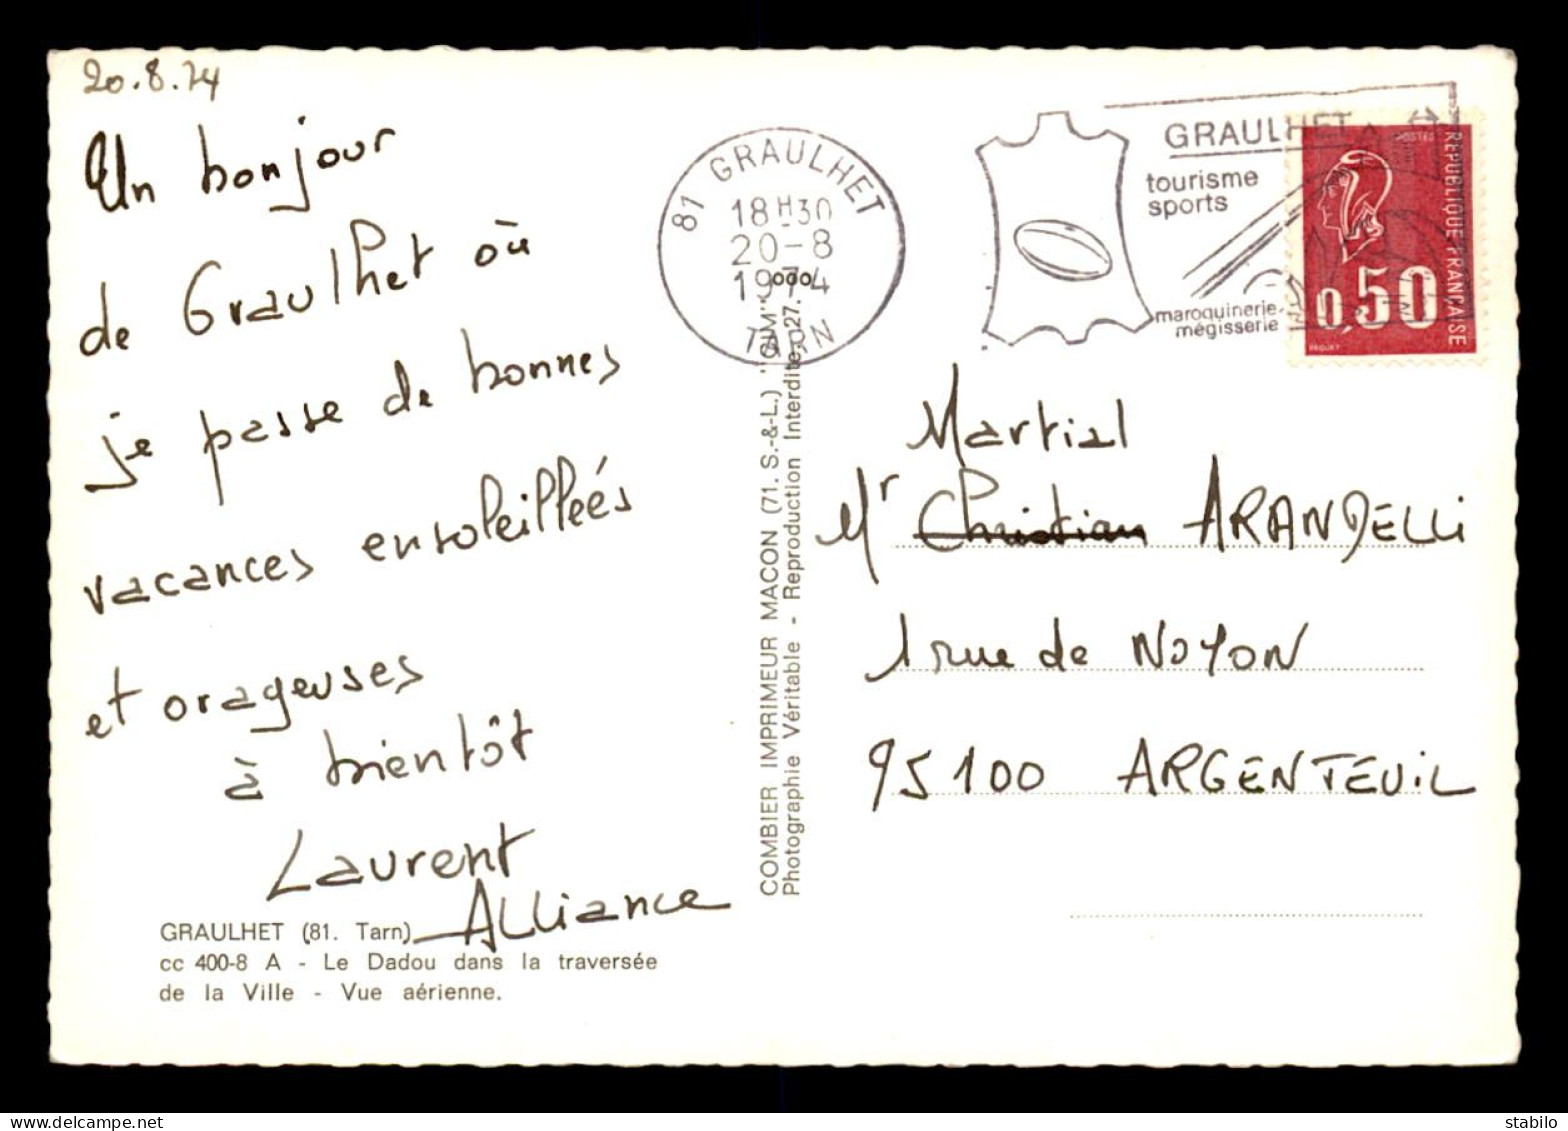 20.8.74
Un bonjour
de Graulhet où
je passe de bonnes
vacances ensoleillées
et orageuses
à bientôt
Laurent
Alliance
GRAULHET (81. Tarn)
cc 400-8 A - Le Dadou dans la traversée
de la Ville - Vue aérienne.
COMBIER IMPRIMEUR MACON (71. S.-&-L.) "CIM"
Photographie Véritable - Reproduction Interdite
81 GRAULHET
18H30
20-8
1974
TARN
GRAULHET
tourisme
sports
maroquinerie
mégisserie
POSTES
REPUBLIQUE FRANÇAISE
0,50
Martial
Mr Christian ARANDELLi
1 rue de NOYON
95100 ARGENTEUIL
stabilo